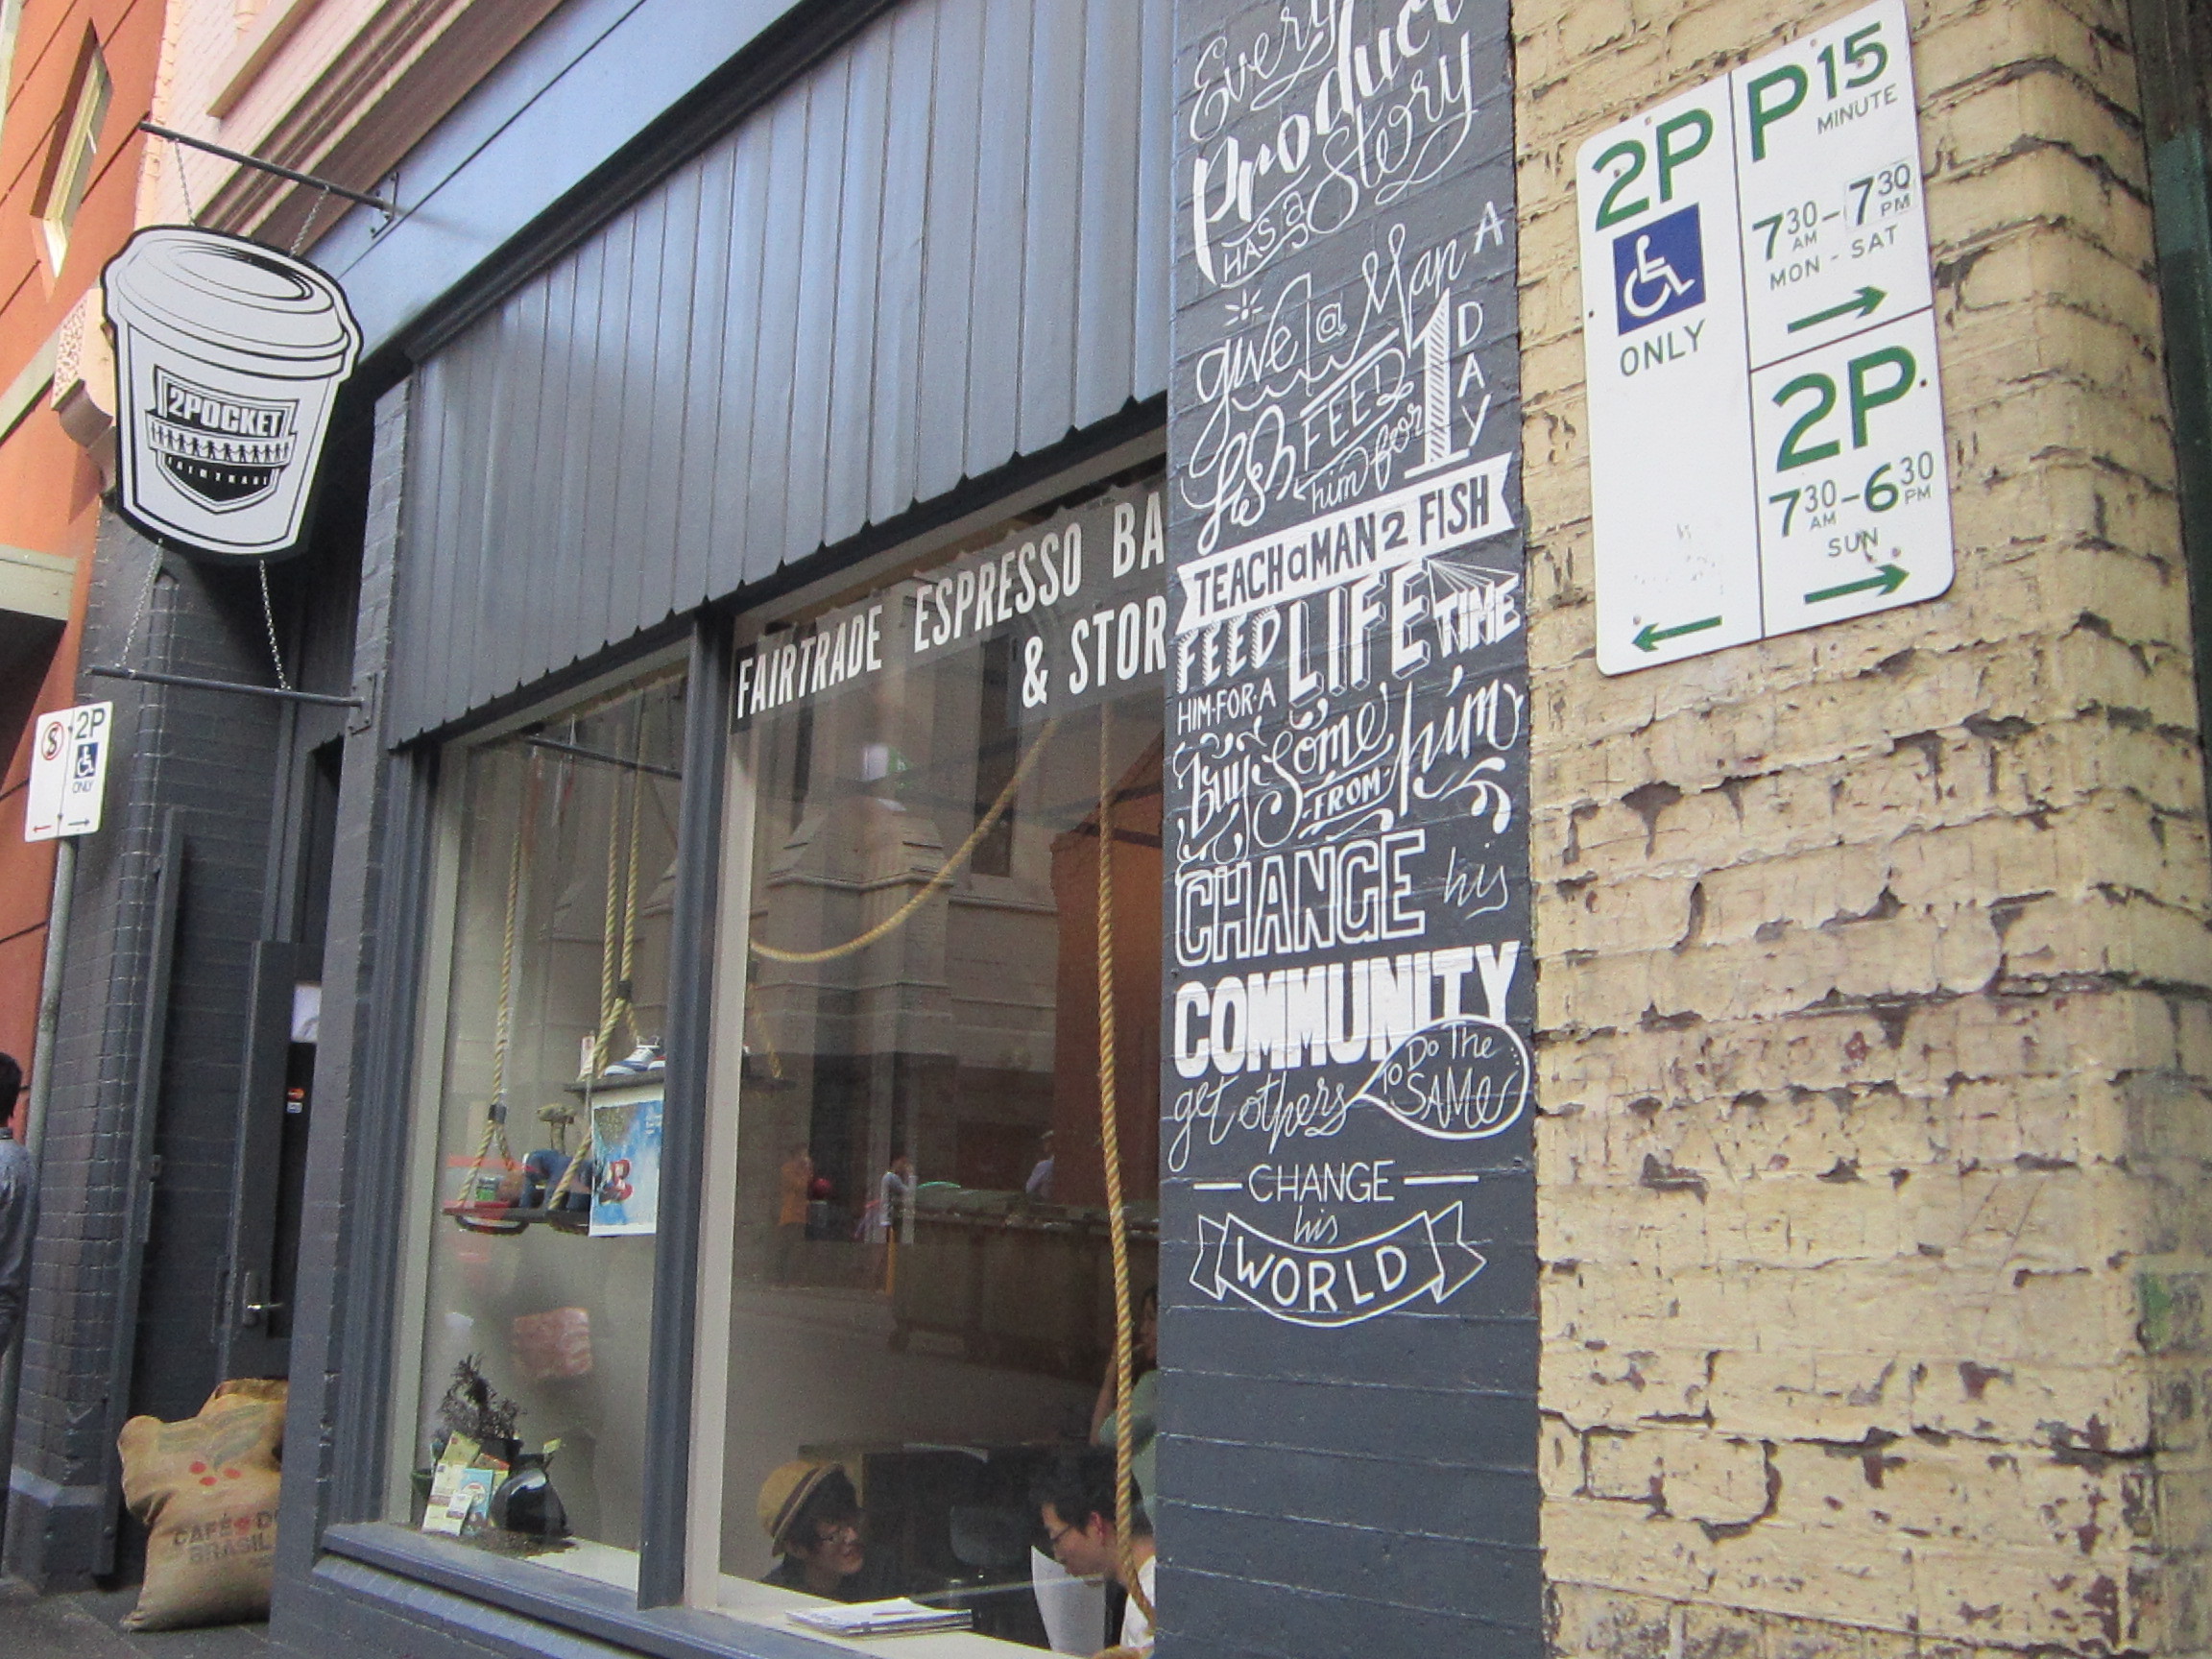 2POCKET
FAIRTRADE
S
2P
ONLY
FAIRTRADE ESPRESSO BA
& STOR
Every
Product
HAS a
Story
give a Man A
fish FEED
him for 1
DAY
TEACH a MAN 2 FISH
FEED
HIM·FOR·A
LIFE TIME
buy Some
FROM him
CHANGE his
COMMUNITY
get others
TO DO The
SAMe
CHANGE
his
WORLD
2P
ONLY
P15
MINUTE
7 30 AM - 7 30 PM
MON - SAT
2P
7 30 AM - 6 30 PM
SUN
CAFÉ DO
BRASIL